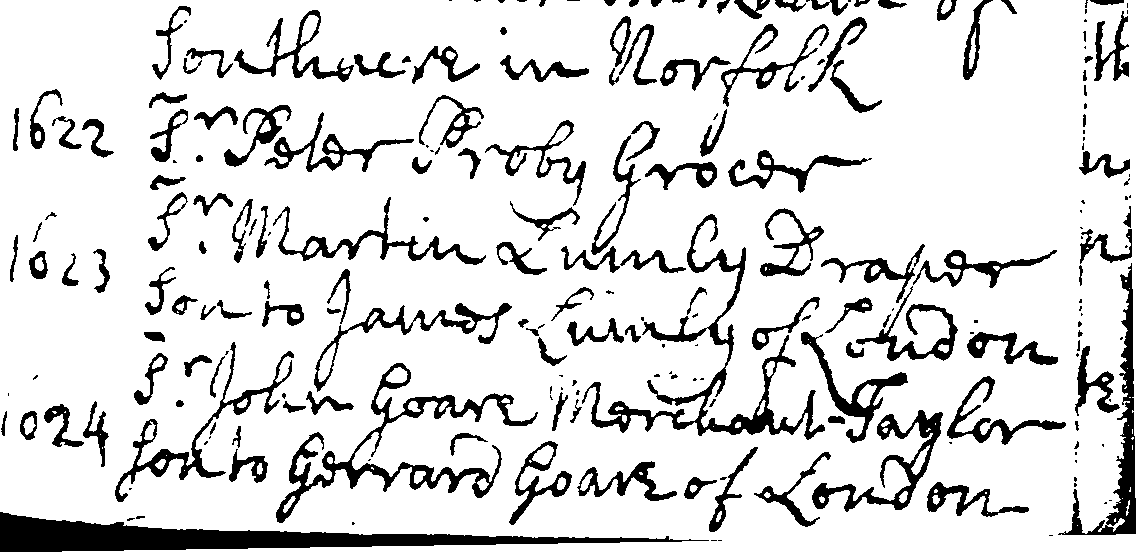 Southacre in Norfolk
1622 Sr. Peter Proby Grocer
1623 Sr. Martin Lumly Draper
Son to James Lumly of London
1624 Sr. John Goare Merchant-Taylor
Son to Gerrard Goare of London